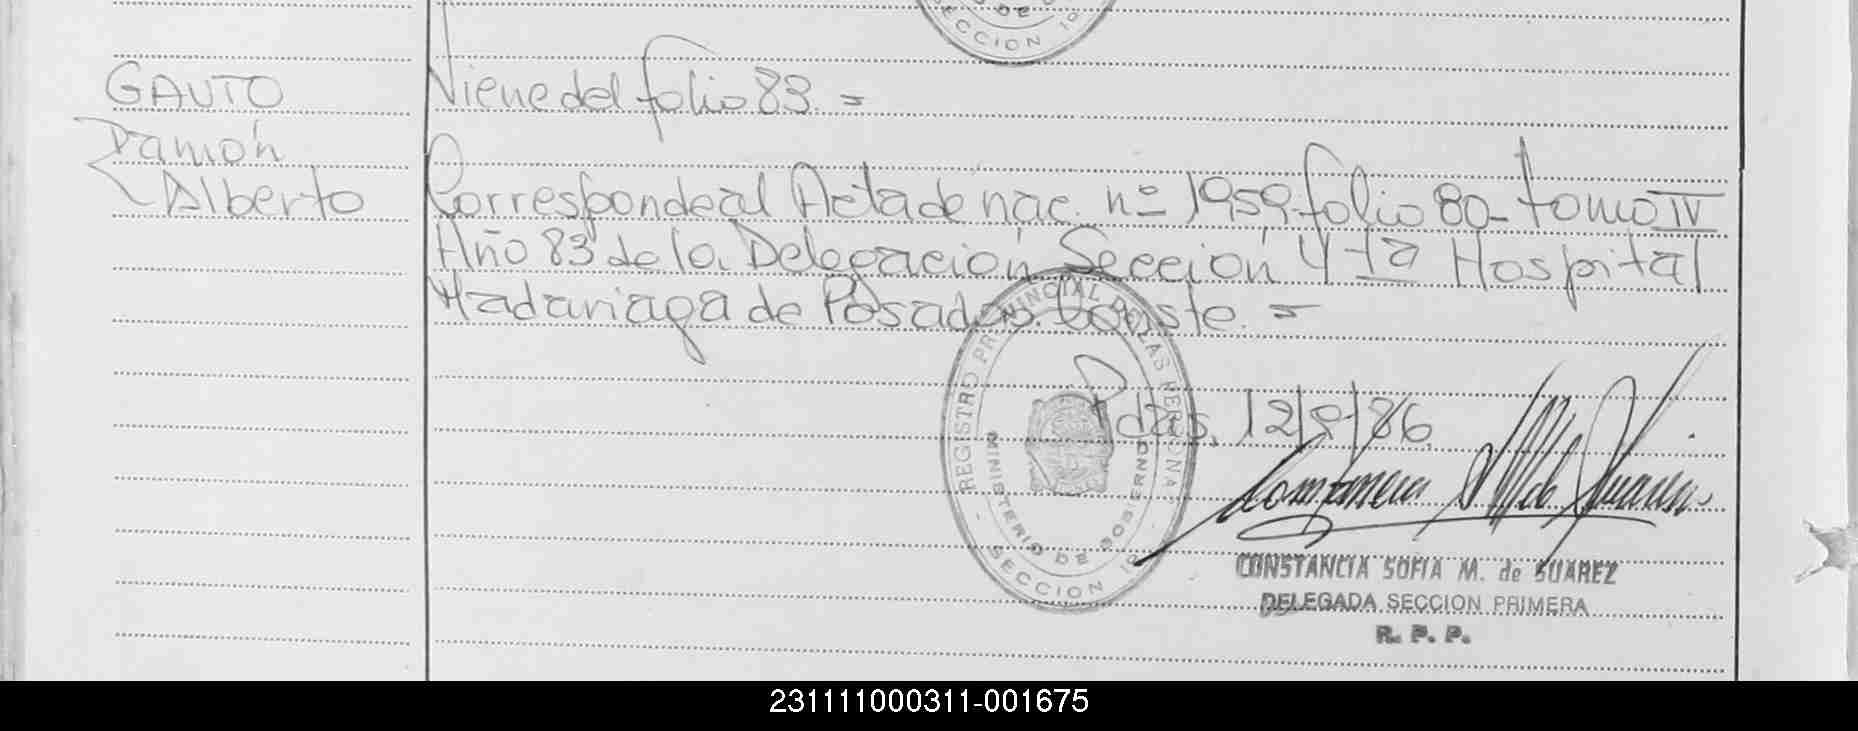 GAUTO
Ramón
Alberto
Viene del folio 83. =
Corresponde al Acta de nac. nº 1959. folio 80- tomo IV
Año 83 de la Delegación Sección 4ta Hospital
Madariaga de Posadas. Conste. =
Pdas, 12/9/86
REGISTRO PROVINCIAL DE LAS PERSONAS
MINISTERIO DE GOBIERNO
SECCION 1º
CONSTANCIA SOFIA M. de SUAREZ
DELEGADA SECCION PRIMERA
R. P. P.
SECCION 1º
231111000311-001675